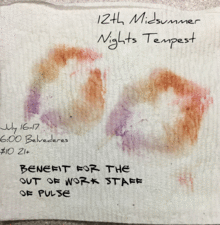 12th Midsummer
Nights Tempest
July 16-17
6:00 Belvederes
$10 21+
BENEFIT FOR THE
OUT OF WORK STAFF
OF PULSE